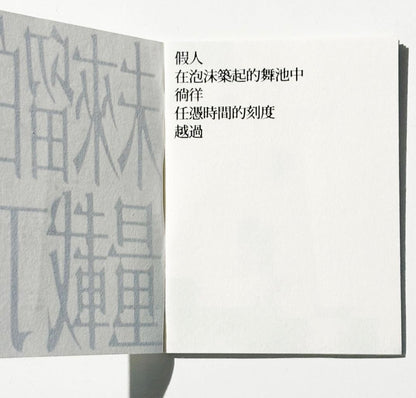 未來留
量載
假人
在泡沫築起的舞池中
徜徉
任憑時間的刻度
越過